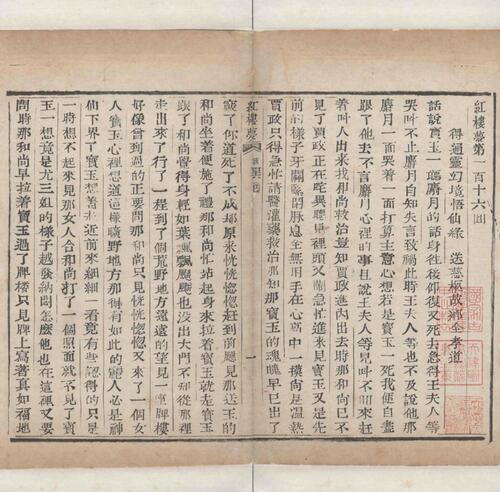 紅樓夢第一百十六回
得通靈幻境悟仙緣 送慈柩故鄉全孝道
話說寶玉一聽麝月的話身往後仰復又死去急得王夫人等
哭叫不止麝月自知失言致禍此時王夫人等也不及說他那
麝月一面哭着一面打算主意心想若是寶玉一死我便自盡
跟了他去不言麝月心裡的事且說王夫人等見叫不回來赶
着叫人出來找和尚救治豈知賈政進內出去時那和尚已不
見了賈政正在詫異聽見裡頭又鬧急忙進來見寶玉又是先
前的樣子牙關緊閉脉息全無用手在心窩中一摸尚是温熱
賈政只得急忙請醫灌藥救治那知那寶玉的魂魄早已出了
紅樓夢 一
竅了你道死了不成却原來恍恍惚惚赶到前廳見那送玉的
和尚坐着便施了禮那和尚忙站起身來拉着寶玉就走寶玉
跟了和尚覺得身輕如葉飄飄颻颻也没出大門不知從那裡
走出來了行了一程到了個荒野地方遠遠的望見一座牌樓
好像曾到過的正要問那和尚只見恍恍惚惚又來了一個女
人寶玉心裡想道這樣曠野地方那得有如此的麗人必是神
仙下界了寶玉想着走近前來細細一看竟有些認得的只是
一時想不起來見那女人合和尚打了一個照面就不見了寶
玉一想竟是尤三姐的樣子越發納悶怎麽他也在這裡又要
問時那和尚早拉着寶玉過了牌樓只見牌上寫着真如福地